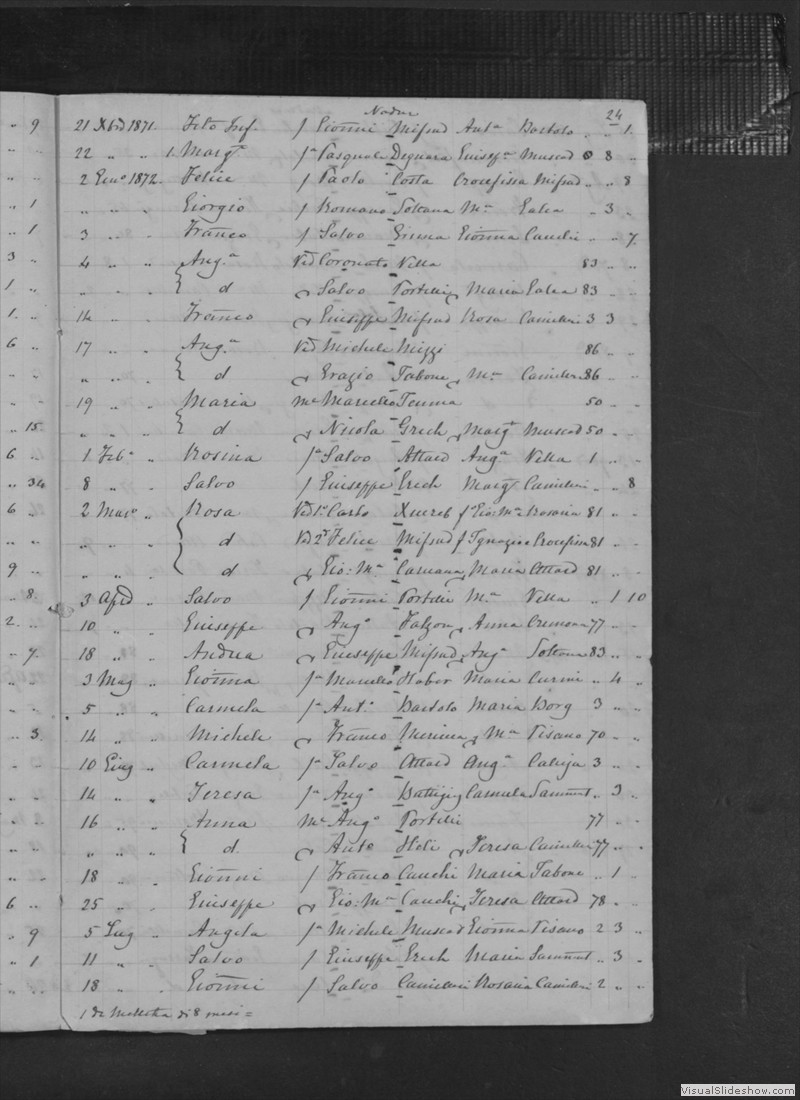 Nadur
24
9 21 Xbre 1871. Tito Inf. f Giom̃i Mifsud Ant.a Bartolo .. .. 1.
22 .. .. 1. Marg.a f.a Pasquale Degnara Giusep.a Muscat 0 8 ..
2 Gen.o 1872. Felice f Paolo Costa Crocefissa Mifsud .. .. 8
1 .. .. .. Giorgio f Romano Soltana M.a Galea .. 3 ..
1 3 .. .. Franco f Salvo Ginna Giom̃a Cauchi .. .. 7.
3 4 .. .. Ang.a Ved Coronato Vella 83 .. ..
1 .. .. .. d Salvo Portelli Maria Galea 83 .. ..
1. 14 .. .. Franco Giuseppe Mifsud Rosa Camilleri 3 3 ..
6 17 .. .. Ang.a Ved Michele Mizzi 86 .. ..
.. .. .. d Grazio Tabone M.a Camilleri 86 .. ..
19 .. .. Maria M.e Marcello Teuma 50 .. ..
15 .. .. .. d Nicola Grech Marg.a Muscat 50 .. ..
6 1 Feb.o .. Rosina f.a Salvo Attard Ang.a Vella 1 .. ..
34 8 .. .. Salvo f Giuseppe Grech Marg.a Camilleri .. .. 8
6 2 Marzo .. Rosa Ved 1.o Carlo Xuereb f.a Gio: M.a Rosaria 81 .. ..
.. .. .. d Ved 2.o Felice Mifsud f Ignazio e Crocefissa 81 .. ..
9 .. .. .. d Gio: M.a Caruana Maria Attard 81 .. ..
8 3 April .. Salvo f Giom̃i Portelli M.a Vella .. 1 10
2. 10 .. .. Giuseppe Ang.o Falzon Anna Cremona 77 .. ..
7. 18 .. .. Andrea Giuseppe Mifsud Ang.a Soltana 83 .. ..
3 Mag .. Giom̃a f.a Marcello Haber Maria Curmi .. 4 ..
5 .. .. Carmela f.a Ant.o Bartolo Maria Borg 3 .. ..
3 14 .. .. Michele Franco M.a Pisano 70 .. ..
10 Giug .. Carmela f.a Salvo Attard Ang.a Calleja 3 .. ..
14 .. .. Teresa f.a Ang.o Buttigieg Carmela Sammut .. 3 ..
16 .. .. Anna M.e Ang.o Portelli 77 .. ..
.. .. .. d. Anto Teresa Camilleri 77 .. ..
18 .. .. Giom̃i f Franco Cauchi Maria Tabone .. 1 ..
6 25 .. .. Giuseppe Gio: M.a Cauchi Teresa Attard 78 .. ..
9 5 Lug .. Angela f.a Michele Muscat Giom̃a Pisano 2 3 ..
1 11 .. .. Salvo f Giuseppe Grech Maria Sammut .. 3 ..
18 .. .. Giom̃i f Salvo Camilleri Rosaria Camilleri 2 .. ..
1 da Mellieha di 8 mesi =
VisualSlideshow.com